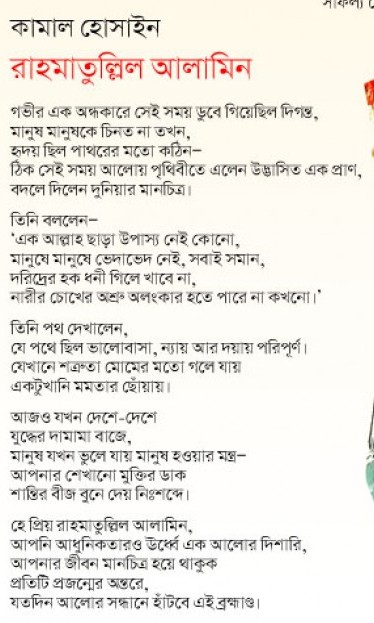 সাফল্য
কামাল হোসাইন
রাহমাতুল্লিল আলামিন
গভীর এক অন্ধকারে সেই সময় ডুবে গিয়েছিল দিগন্ত,
মানুষ মানুষকে চিনত না তখন,
হৃদয় ছিল পাথরের মতো কঠিন–
ঠিক সেই সময় আলোয় পৃথিবীতে এলেন উদ্ভাসিত এক প্রাণ,
বদলে দিলেন দুনিয়ার মানচিত্র।
তিনি বললেন–
‘এক আল্লাহ ছাড়া উপাস্য নেই কোনো,
মানুষে মানুষে ভেদাভেদ নেই, সবাই সমান,
দরিদ্রের হক ধনী গিলে খাবে না,
নারীর চোখের অশ্রু অলংকার হতে পারে না কখনো।’
তিনি পথ দেখালেন,
যে পথে ছিল ভালোবাসা, ন্যায় আর দয়ায় পরিপূর্ণ।
যেখানে শত্রুতা মোমের মতো গলে যায়
একটুখানি মমতার ছোঁয়ায়।
আজও যখন দেশে-দেশে
যুদ্ধের দামামা বাজে,
মানুষ যখন ভুলে যায় মানুষ হওয়ার মন্ত্র–
আপনার শেখানো মুক্তির ডাক
শান্তির বীজ বুনে দেয় নিঃশব্দে।
হে প্রিয় রাহমাতুল্লিল আলামিন,
আপনি আধুনিকতারও উর্ধ্বে এক আলোর দিশারি,
আপনার জীবন মানচিত্র হয়ে থাকুক
প্রতিটি প্রজন্মের অন্তরে,
যতদিন আলোর সন্ধানে হাঁটবে এই ব্রহ্মাণ্ড।